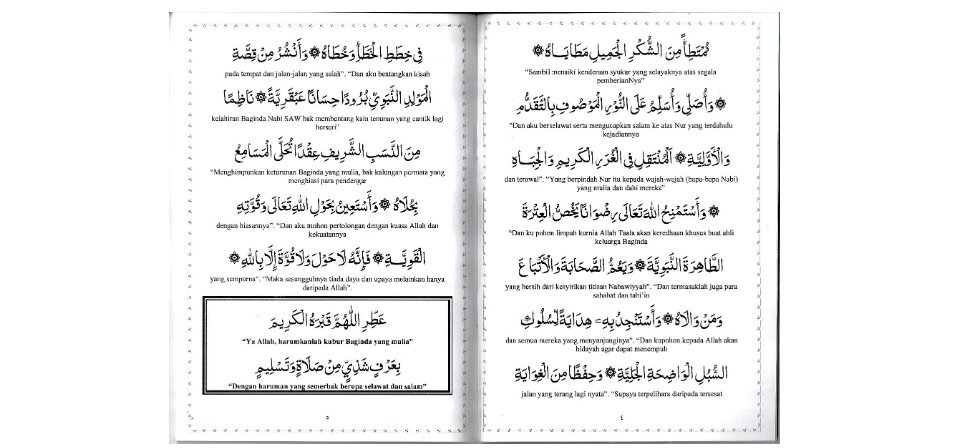 مُمْتَطِأً مِنَ الشُّكْرِ الْجَمِيلِ مَطَايَاهُ ۞
“Sambil menaiki kenderaan syukur yang selayaknya atas segala
pemberianNya”
وَأُصَلِّي وَأُسَلِّمُ عَلَى النُّوْرِ الْمَوْصُوفِ بِالتَّقَدُّمِ
“Dan aku berselawat serta mengucapkan salam ke atas Nur yang terdahulu
kejadiannya
وَالْأَوَّلِيَّةِ ۞ اَلْمُنْتَقِلِ فِي الْغُرَرِ الْكَرِيمَةِ وَالْجِبَاهِ
dan terawal”. “Yang berpindah Nur itu kepada wajah-wajah (bapa-bapa Nabi)
yang mulia dan dahi mereka”
۞ وَأَسْتَمْنِحُ اللهَ تَعَالَى رِضْوَانًا يَخُصُّ الْعِتْرَةَ
“Dan ku pohon limpah kurnia Allah Taala akan keredhaan khusus buat ahli
keluarga Baginda
الطَّاهِرَةَ النَّبَوِيَّةَ ۞ وَيَعُمُّ الصَّحَابَةَ وَالْأَتْبَاعَ
yang bersih dari kesyirikan titisan Nabawiyyah”. “Dan termasuklah juga para
sahabat dan tabi’in
وَمَنْ وَالَاهُ ۞ وَأَسْتَنْجِدُ بِهِ هِدَايَةً لِسُلُوكِ
dan semua mereka yang menyanjunginya”. “Dan kupohon kepada Allah akan
hidayah agar dapat menempuh
السُّبُلِ الْوَاضِحَةِ الْجَلِيَّةِ ۞ وَحِفْظًا مِنَ الْغِوَايَةِ
jalan yang terang lagi nyata”. “Supaya terpelihara daripada tersesat
٤
فِي خِطَطِ الْخَطَأِ وَخُطَاهُ ۞ وَأَنْشُرُ مِنْ قِصَّةِ
pada tempat dan jalan-jalan yang salah”. “Dan aku bentangkan kisah
الْمَوْلِدِ النَّبَوِيِّ بُرُودًا حِسَانًا عَبْقَرِيَّةً ۞ نَاظِمًا
kelahiran Baginda Nabi SAW bak membentang kain tenunan yang cantik lagi
berseri”
مِنَ النَّسَبِ الشَّرِيفِ عِقْدًا تُحَلَّى الْمَسَامِعُ
“Menghimpunkan keturunan Baginda yang mulia, bak kalungan permata yang
menghiasi para pendengar
بِحُلَاهُ ۞ وَأَسْتَعِينُ بِحَوْلِ اللهِ تَعَالَى وَقُوَّتِهِ
dengan hiasannya”. “Dan aku mohon pertolongan dengan kuasa Allah dan
kekuatannya
الْقَوِيَّةِ ۞ فَإِنَّهُ لَا حَوْلَ وَلَا قُوَّةَ إِلَّا بِاللهِ ۞
yang sempurna”. “Maka sesungguhnya tiada daya dan upaya melainkan hanya
daripada Allah”.
عَطِّرِ اللّٰهُمَّ قَبْرَهُ الْكَرِيمَ
“Ya Allah, harumkanlah kubur Baginda yang mulia”
بِعَرْفٍ شَذِيٍّ مِنْ صَلَاةٍ وَتَسْلِيمٍ
“Dengan haruman yang semerbak berupa selawat dan salam”
٥